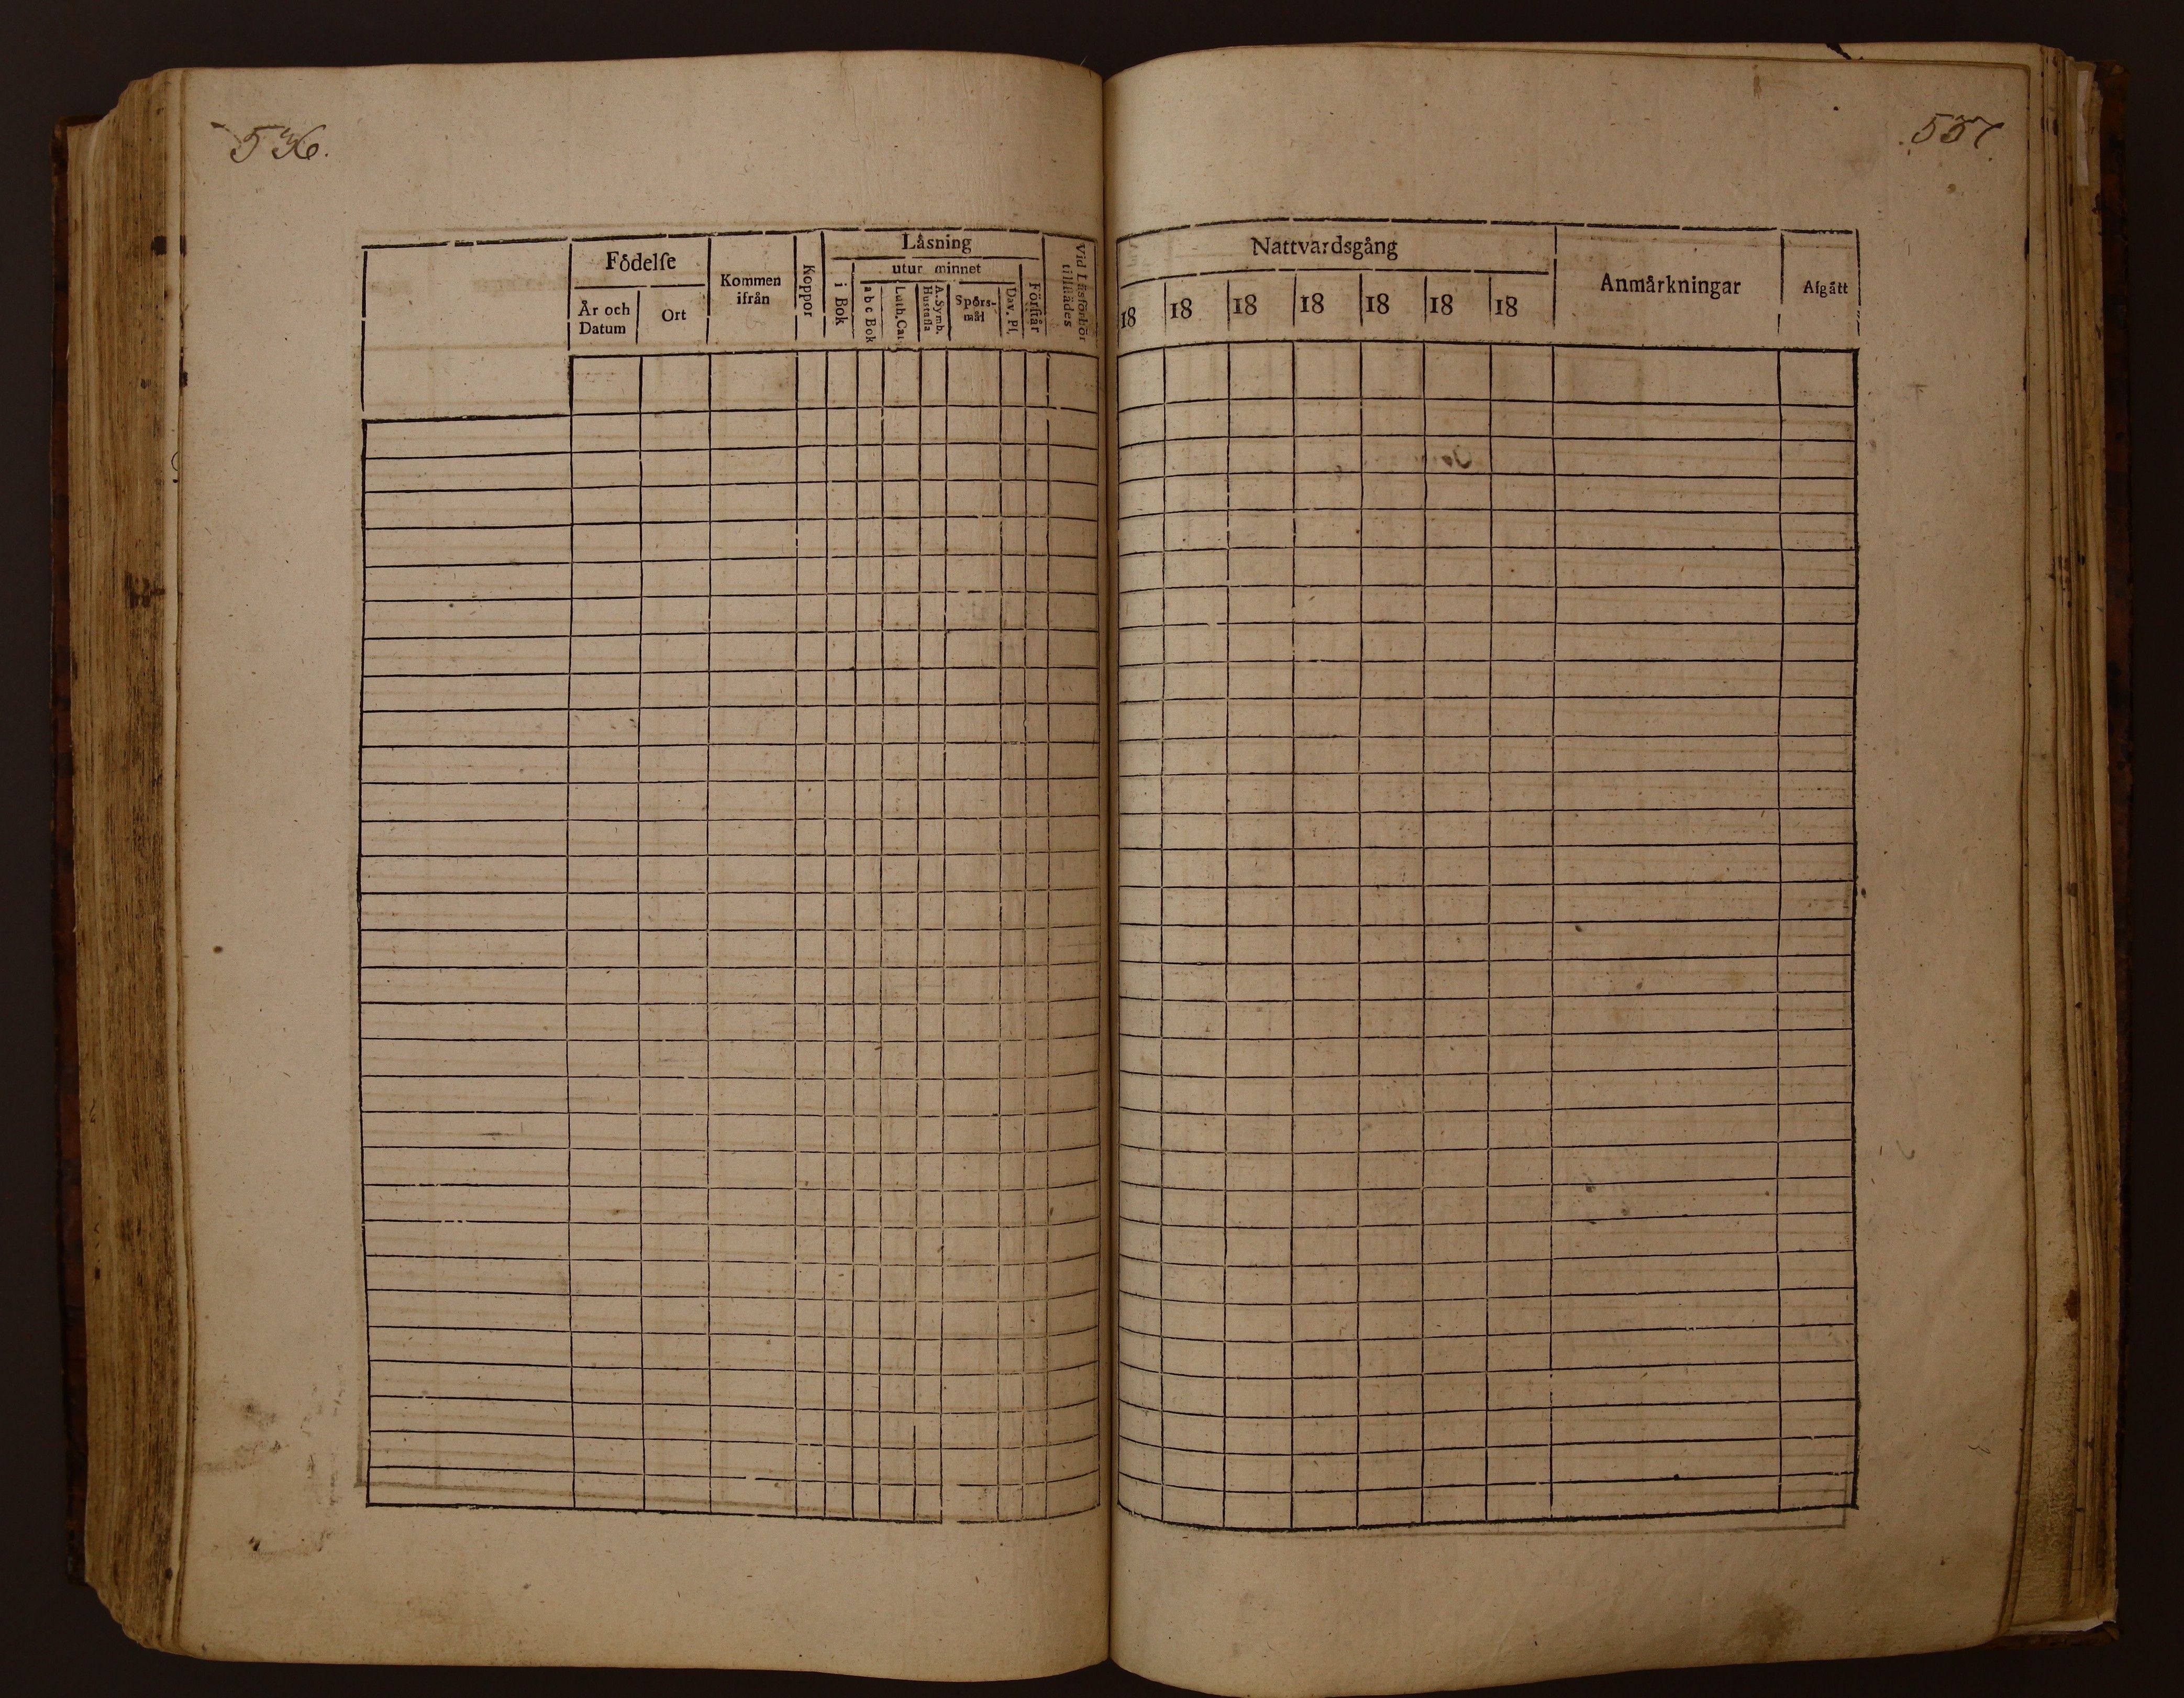 536.
Födelſe
År och Datum
Ort
Kommen ifrån
Koppor
Låsning
utur minnet
i Bok
a b c Bok
Luth. Cat
A. Symb. Hustafla
Spörs-mål
Dav. Pſ.
Förſtår
Vid Läsförhör tillſtädes
537
Nattvardsgång
18 18 18 18 18 18 18
Anmårkningar
Afgått